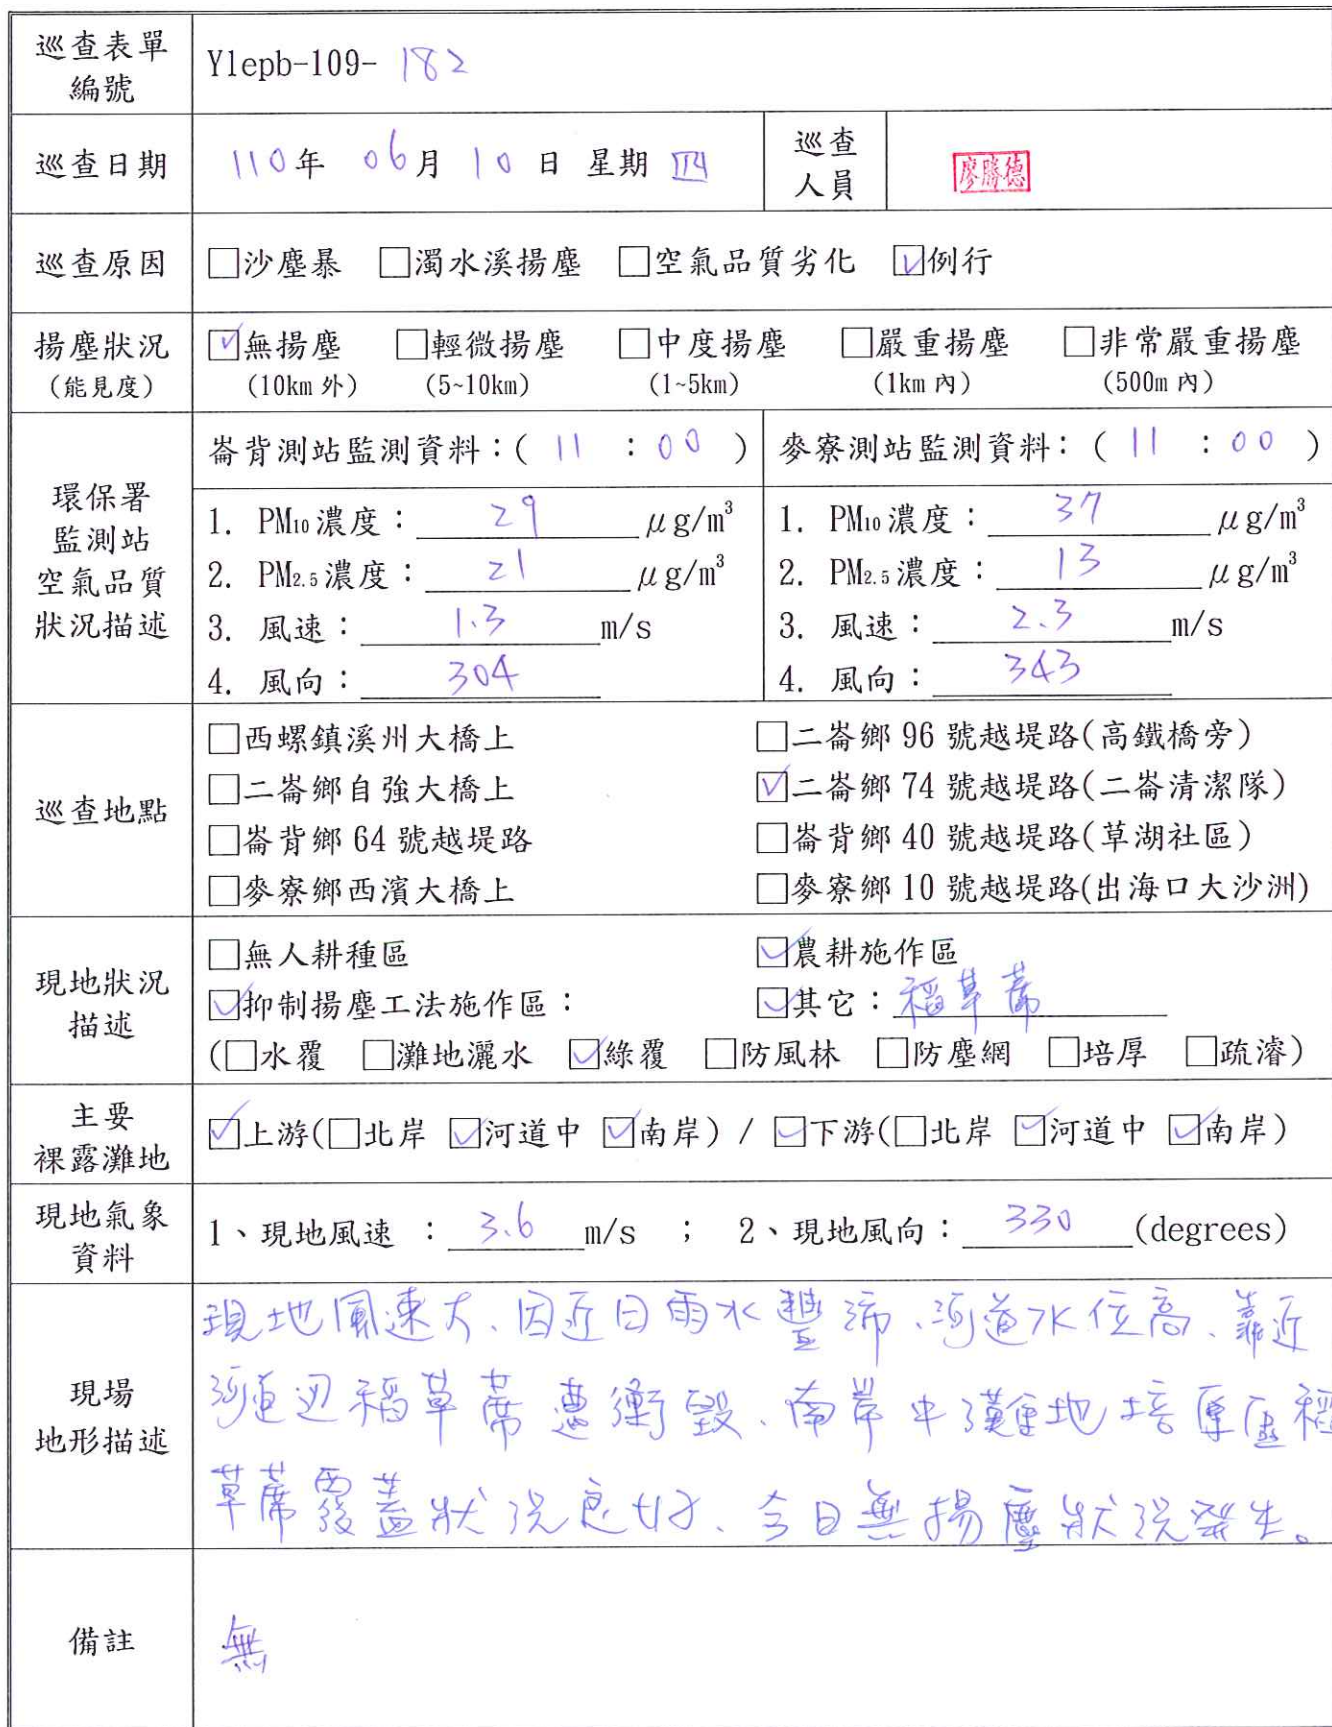 巡查表單
編號
Ylepb-109- 182
巡查日期
110年 06月 10日 星期 四
巡查
人員
廖勝德
巡查原因
□沙塵暴 □濁水溪揚塵 □空氣品質劣化 ☑例行
揚塵狀況
(能見度)
☑無揚塵 □輕微揚塵 □中度揚塵 □嚴重揚塵 □非常嚴重揚塵
(10km 外) (5~10km) (1~5km) (1km 內) (500m 內)
環保署
監測站
空氣品質
狀況描述
崙背測站監測資料：( 11 : 00 )
1. PM10 濃度： 29 μg/m³
2. PM2.5 濃度： 21 μg/m³
3. 風速： 1.3 m/s
4. 風向： 304
麥寮測站監測資料：( 11 : 00 )
1. PM10 濃度： 37 μg/m³
2. PM2.5 濃度： 13 μg/m³
3. 風速： 2.3 m/s
4. 風向： 343
巡查地點
□西螺鎮溪州大橋上 □二崙鄉 96 號越堤路(高鐵橋旁)
□二崙鄉自強大橋上 ☑二崙鄉 74 號越堤路(二崙清潔隊)
□崙背鄉 64 號越堤路 □崙背鄉 40 號越堤路(草湖社區)
□麥寮鄉西濱大橋上 □麥寮鄉 10 號越堤路(出海口大沙洲)
現地狀況
描述
□無人耕種區 ☑農耕施作區
☑抑制揚塵工法施作區： ☑其它：稻草蓆
(□水覆 □灘地灑水 ☑綠覆 □防風林 □防塵網 □培厚 □疏濬)
主要
裸露灘地
☑上游(□北岸 ☑河道中 ☑南岸) / ☑下游(□北岸 ☑河道中 ☑南岸)
現地氣象
資料
1、現地風速 ： 3.6 m/s ； 2、現地風向： 330 (degrees)
現場
地形描述
現地風速大、因近日雨水豐沛、河道水位高、靠近
河道边稻草蓆遭衝毀、南岸中灘地培厚區稻
草蓆覆蓋狀況良好、今日無揚塵狀況發生。
備註
無